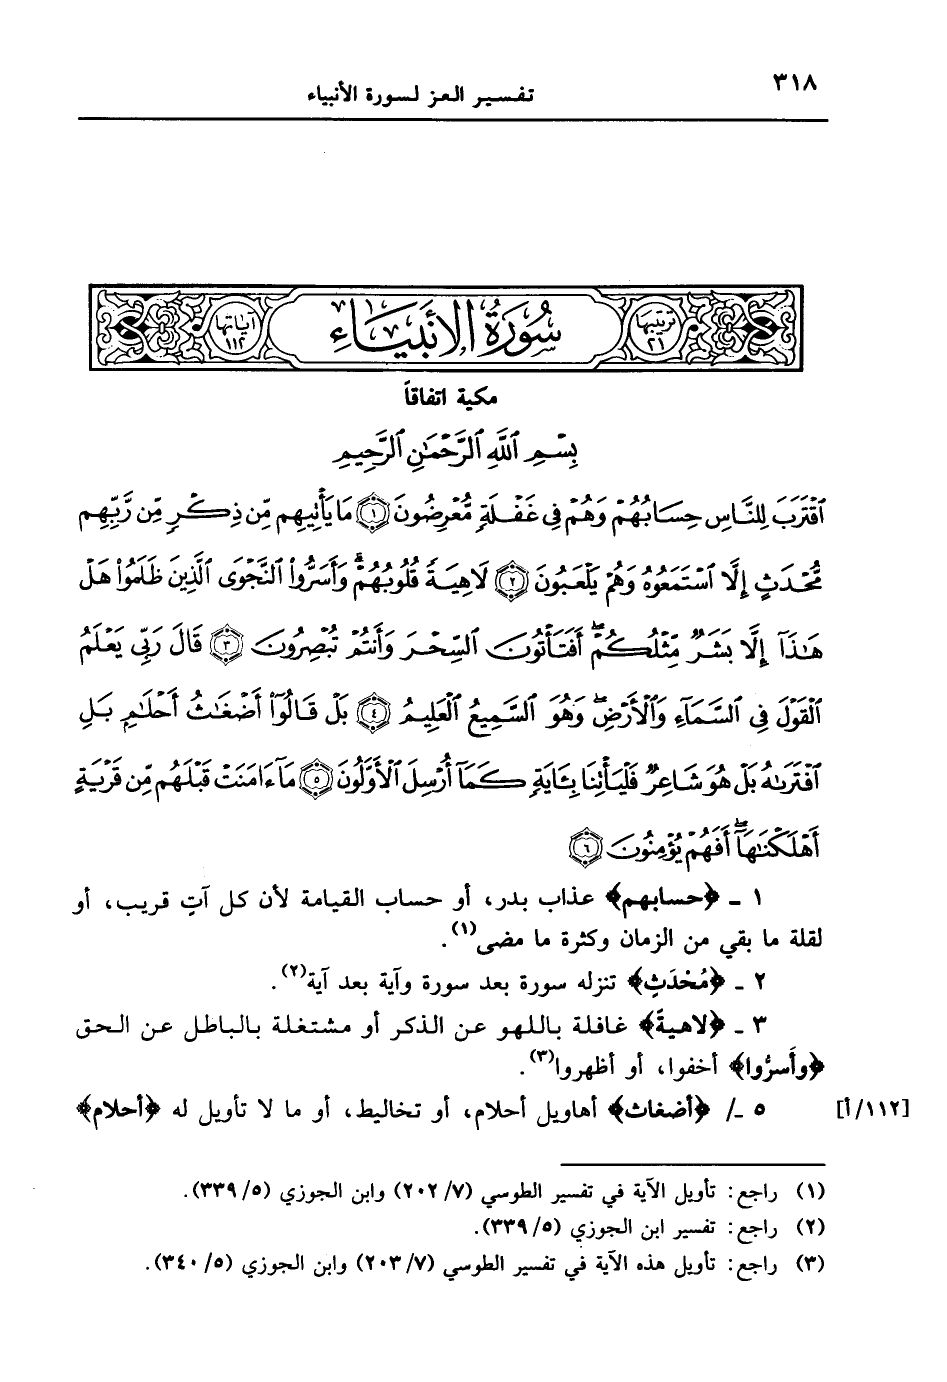 ٣١٨
تفسير العز لسورة الأنبياء
ترتيبها ٢١
سُورَةُ الأَنبِيَاءِ
آياتها ١١٢
مكية اتفاقاً
بِسْمِ ٱللَّهِ ٱلرَّحْمَٰنِ ٱلرَّحِيمِ
ٱقْتَرَبَ لِلنَّاسِ حِسَابُهُمْ وَهُمْ فِى غَفْلَةٍ مُّعْرِضُونَ ۝١ مَا يَأْتِيهِم مِّن ذِكْرٍ مِّن رَّبِّهِم
مُّحْدَثٍ إِلَّا ٱسْتَمَعُوهُ وَهُمْ يَلْعَبُونَ ۝٢ لَاهِيَةً قُلُوبُهُمْ ۗ وَأَسَرُّوا۟ ٱلنَّجْوَى ٱلَّذِينَ ظَلَمُوا۟ هَلْ
هَٰذَآ إِلَّا بَشَرٌ مِّثْلُكُمْ ۖ أَفَتَأْتُونَ ٱلسِّحْرَ وَأَنتُمْ تُبْصِرُونَ ۝٣ قَالَ رَبِّى يَعْلَمُ
ٱلْقَوْلَ فِى ٱلسَّمَآءِ وَٱلْأَرْضِ ۖ وَهُوَ ٱلسَّمِيعُ ٱلْعَلِيمُ ۝٤ بَلْ قَالُوٓا۟ أَضْغَٰثُ أَحْلَٰمٍ بَلِ
ٱفْتَرَىٰهُ بَلْ هُوَ شَاعِرٌ فَلْيَأْتِنَا بِـَٔايَةٍ كَمَآ أُرْسِلَ ٱلْأَوَّلُونَ ۝٥ مَآ ءَامَنَتْ قَبْلَهُم مِّن قَرْيَةٍ
أَهْلَكْنَٰهَآ ۖ أَفَهُمْ يُؤْمِنُونَ ۝٦
١ ـ ﴿حسابهم﴾ عذاب بدر، أو حساب القيامة لأن كل آتٍ قريب، أو
لقلة ما بقي من الزمان وكثرة ما مضى(١).
٢ ـ ﴿مُحْدَثٍ﴾ تنزله سورة بعد سورة وآية بعد آية(٢).
٣ ـ ﴿لاهيةً﴾ غافلة باللهو عن الذكر أو مشتغلة بالباطل عن الحق
﴿وأَسرُّوا﴾ أخفوا، أو أظهروا(٣).
[١١٢/أ] ٥ ـ/ ﴿أضغاث﴾ أهاويل أحلام، أو تخاليط، أو ما لا تأويل له ﴿أحلام﴾
(١) راجع: تأويل الآية في تفسير الطوسي (٢٠٢/٧) وابن الجوزي (٣٣٩/٥).
(٢) راجع: تفسير ابن الجوزي (٣٣٩/٥).
(٣) راجع: تأويل هذه الآية في تفسير الطوسي (٢٠٣/٧) وابن الجوزي (٣٤٠/٥).